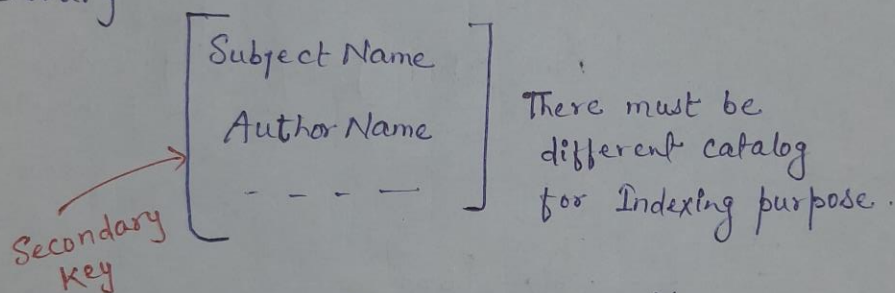 Subject Name
Author Name
- - - -
There must be
different catalog
for Indexing purpose.
Secondary
Key